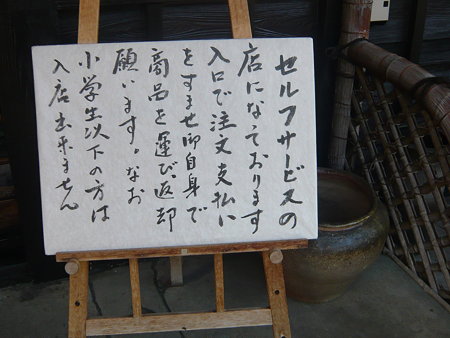 セルフサービスの
店になっております
入口で注文支払に
をすませ御自身で
商品を運び、返却
願います。なお
小学生以下の方は
入店出来ません